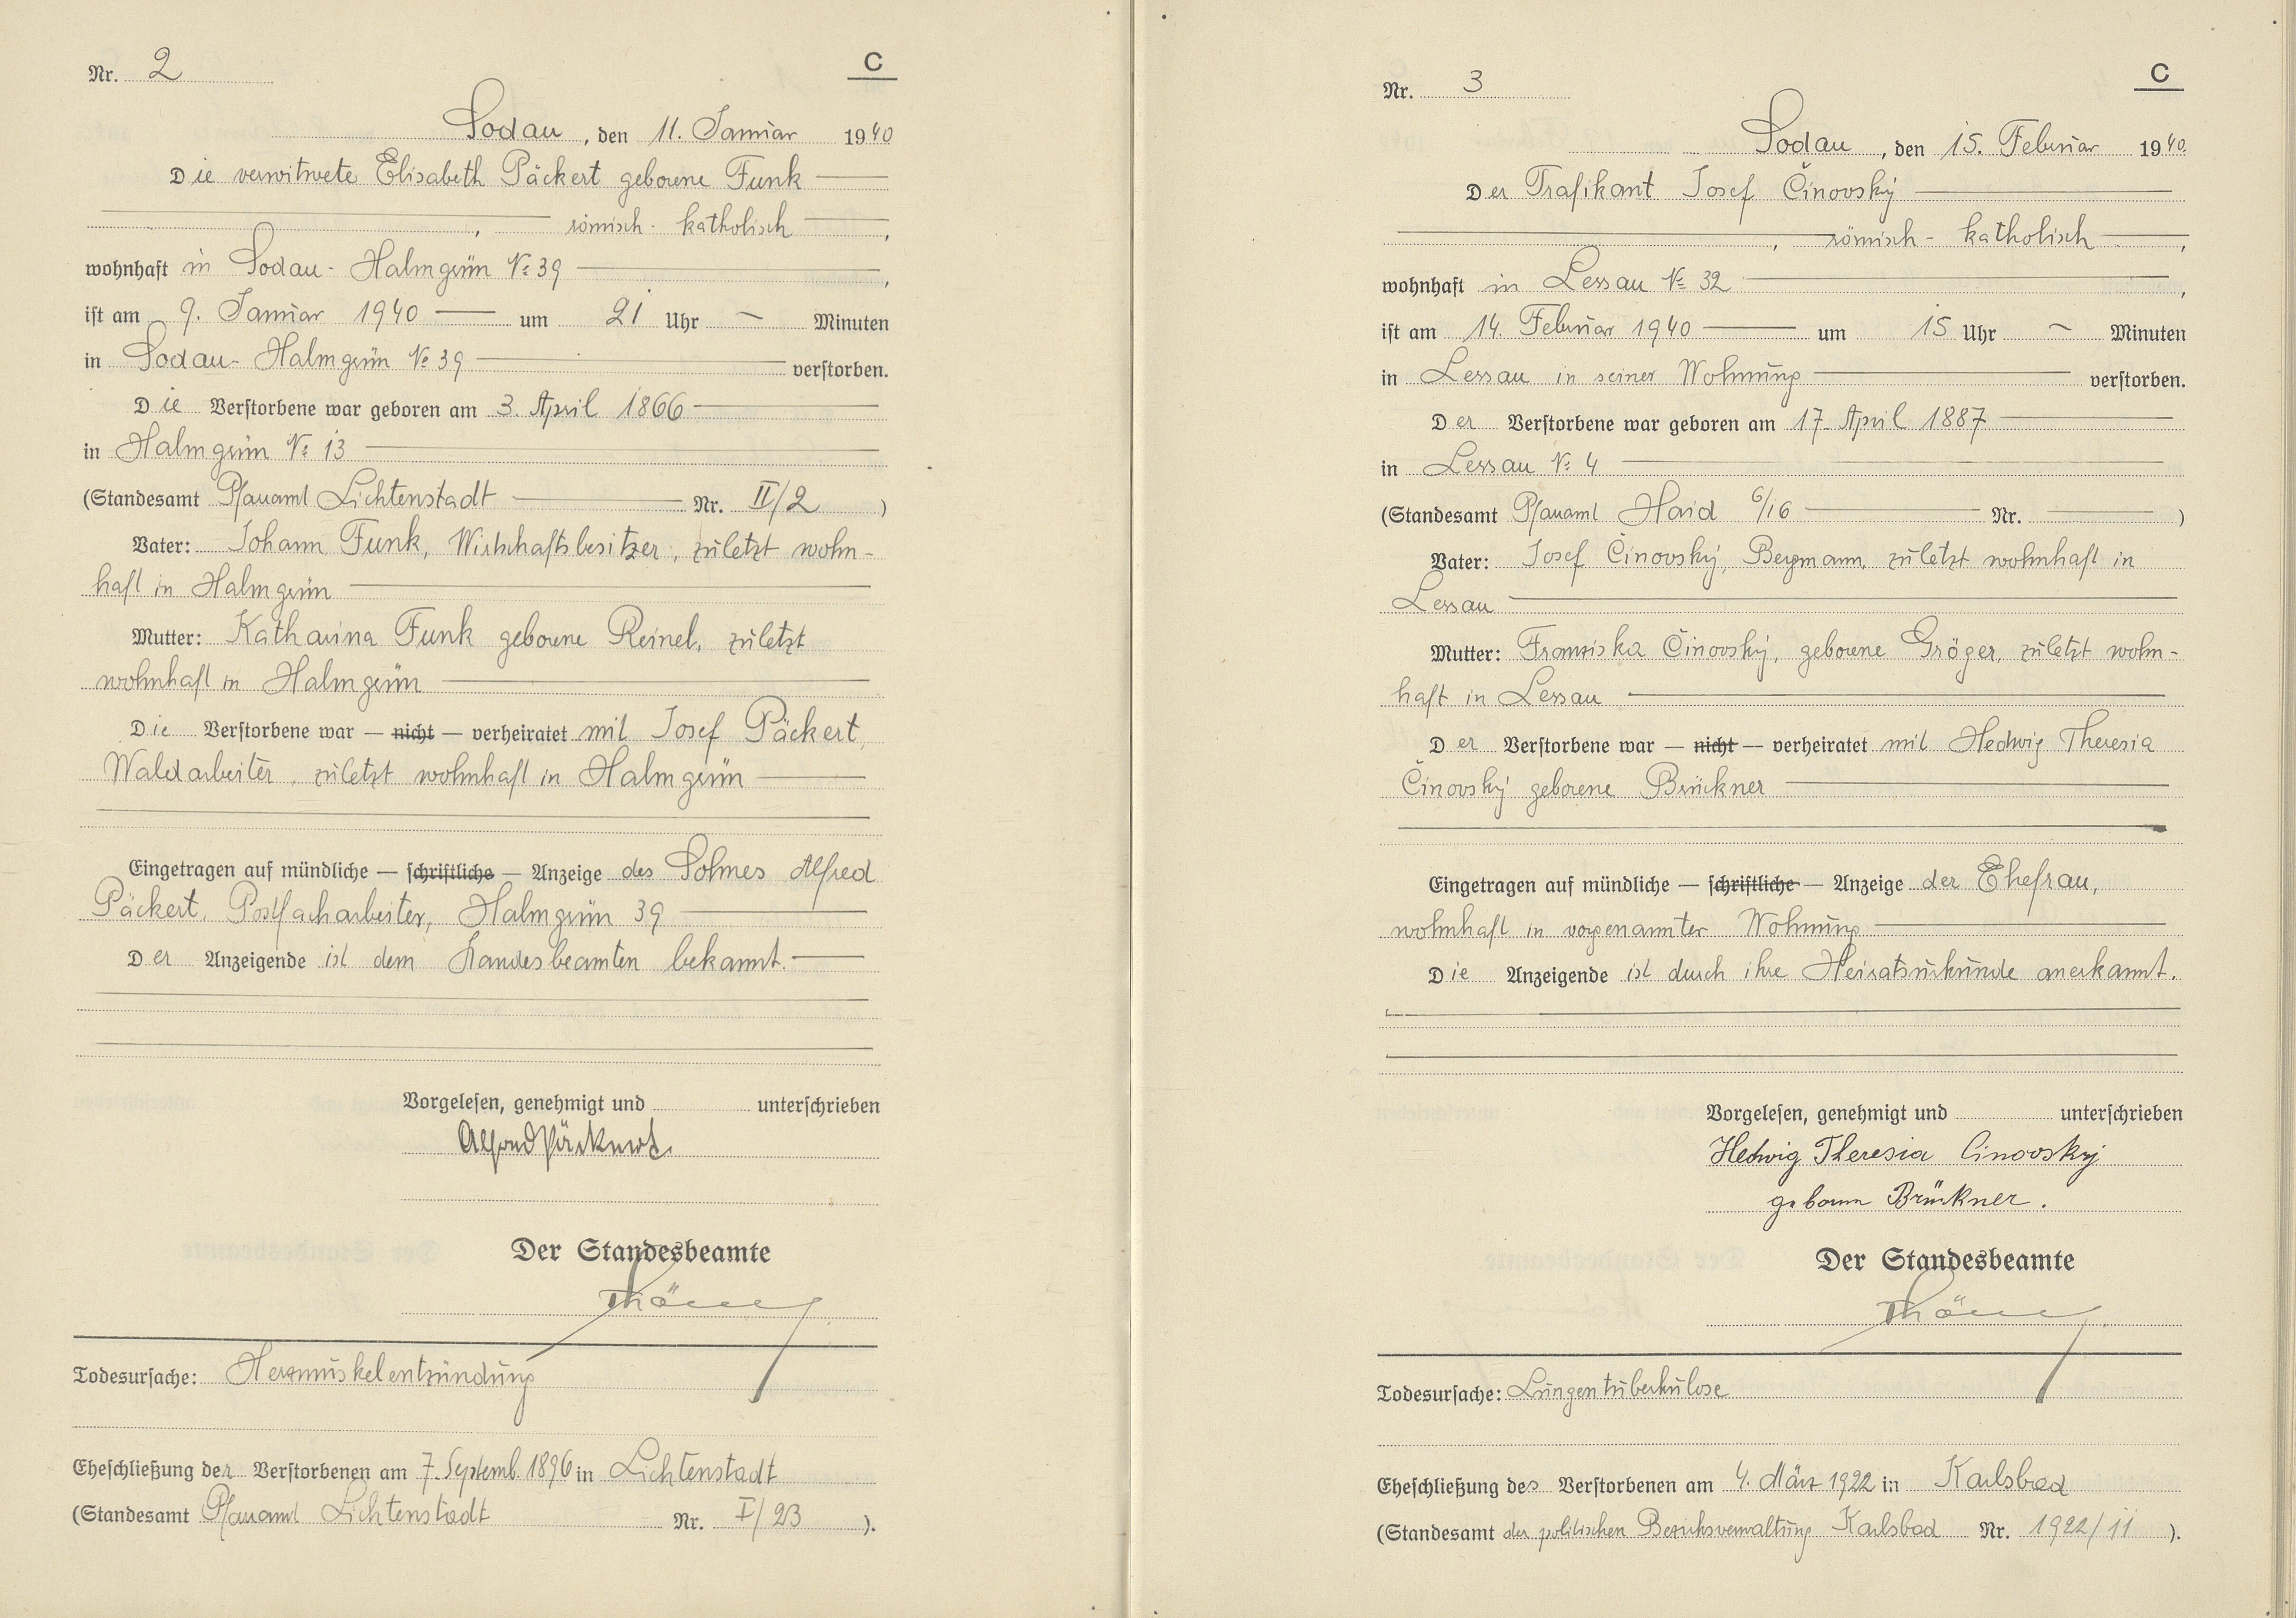 Nr. 2
C
Sodau, den 11. Januar 1940
Die verwitwete Elisabeth Päckert geborene Funk
, römisch-katholisch,
wohnhaft in Sodau-Halmgrün № 39,
ist am 9. Januar 1940 um 21 Uhr — Minuten
in Sodau-Halmgrün № 39 verstorben.
Die Verstorbene war geboren am 3. April 1866
in Halmgrün № 13
(Standesamt Pfarramt Lichtenstadt Nr. II/2)
Vater: Johann Funk, Wirtschaftsbesitzer, zuletzt wohn-
haft in Halmgrün
Mutter: Katharina Funk geborene Reinel, zuletzt
wohnhaft in Halmgrün
Die Verstorbene war — nicht — verheiratet mit Josef Päckert,
Waldarbeiter, zuletzt wohnhaft in Halmgrün
Eingetragen auf mündliche — schriftliche — Anzeige des Sohnes Alfred
Päckert, Postfacharbeiter, Halmgrün 39
Der Anzeigende ist dem Standesbeamten bekannt.
Vorgelesen, genehmigt und unterschrieben
Alfred Päckert.
Der Standesbeamte
Todesursache: Herzmuskelentzündung
Eheschließung der Verstorbenen am 7. Septemb. 1896 in Lichtenstadt
(Standesamt Pfarramt Lichtenstadt Nr. I/23).
Nr. 3
C
Sodau, den 15. Februar 1940.
Der Trafikant Josef Činovský
, römisch-katholisch,
wohnhaft in Lessau № 32,
ist am 14. Februar 1940 um 15 Uhr — Minuten
in Lessau in seiner Wohnung verstorben.
Der Verstorbene war geboren am 17. April 1887
in Lessau № 4
(Standesamt Pfarramt Haid 6/16 Nr. —)
Vater: Josef Činovský, Bergmann, zuletzt wohnhaft in
Lessau
Mutter: Franziska Činovský, geborene Gröger, zuletzt wohn-
haft in Lessau
Der Verstorbene war — nicht — verheiratet mit Hedwig Theresia
Činovský geborene Brückner
Eingetragen auf mündliche — schriftliche — Anzeige der Ehefrau,
wohnhaft in vorgenannter Wohnung
Die Anzeigende ist durch ihre Heiratsurkunde anerkannt.
Vorgelesen, genehmigt und unterschrieben
Hedwig Theresia Cinovský
geboren Brückner.
Der Standesbeamte
Todesursache: Lungentuberkulose
Eheschließung des Verstorbenen am 4. März 1922 in Karlsbad
(Standesamt der politischen Bezirksverwaltung Karlsbad Nr. 1922/11).